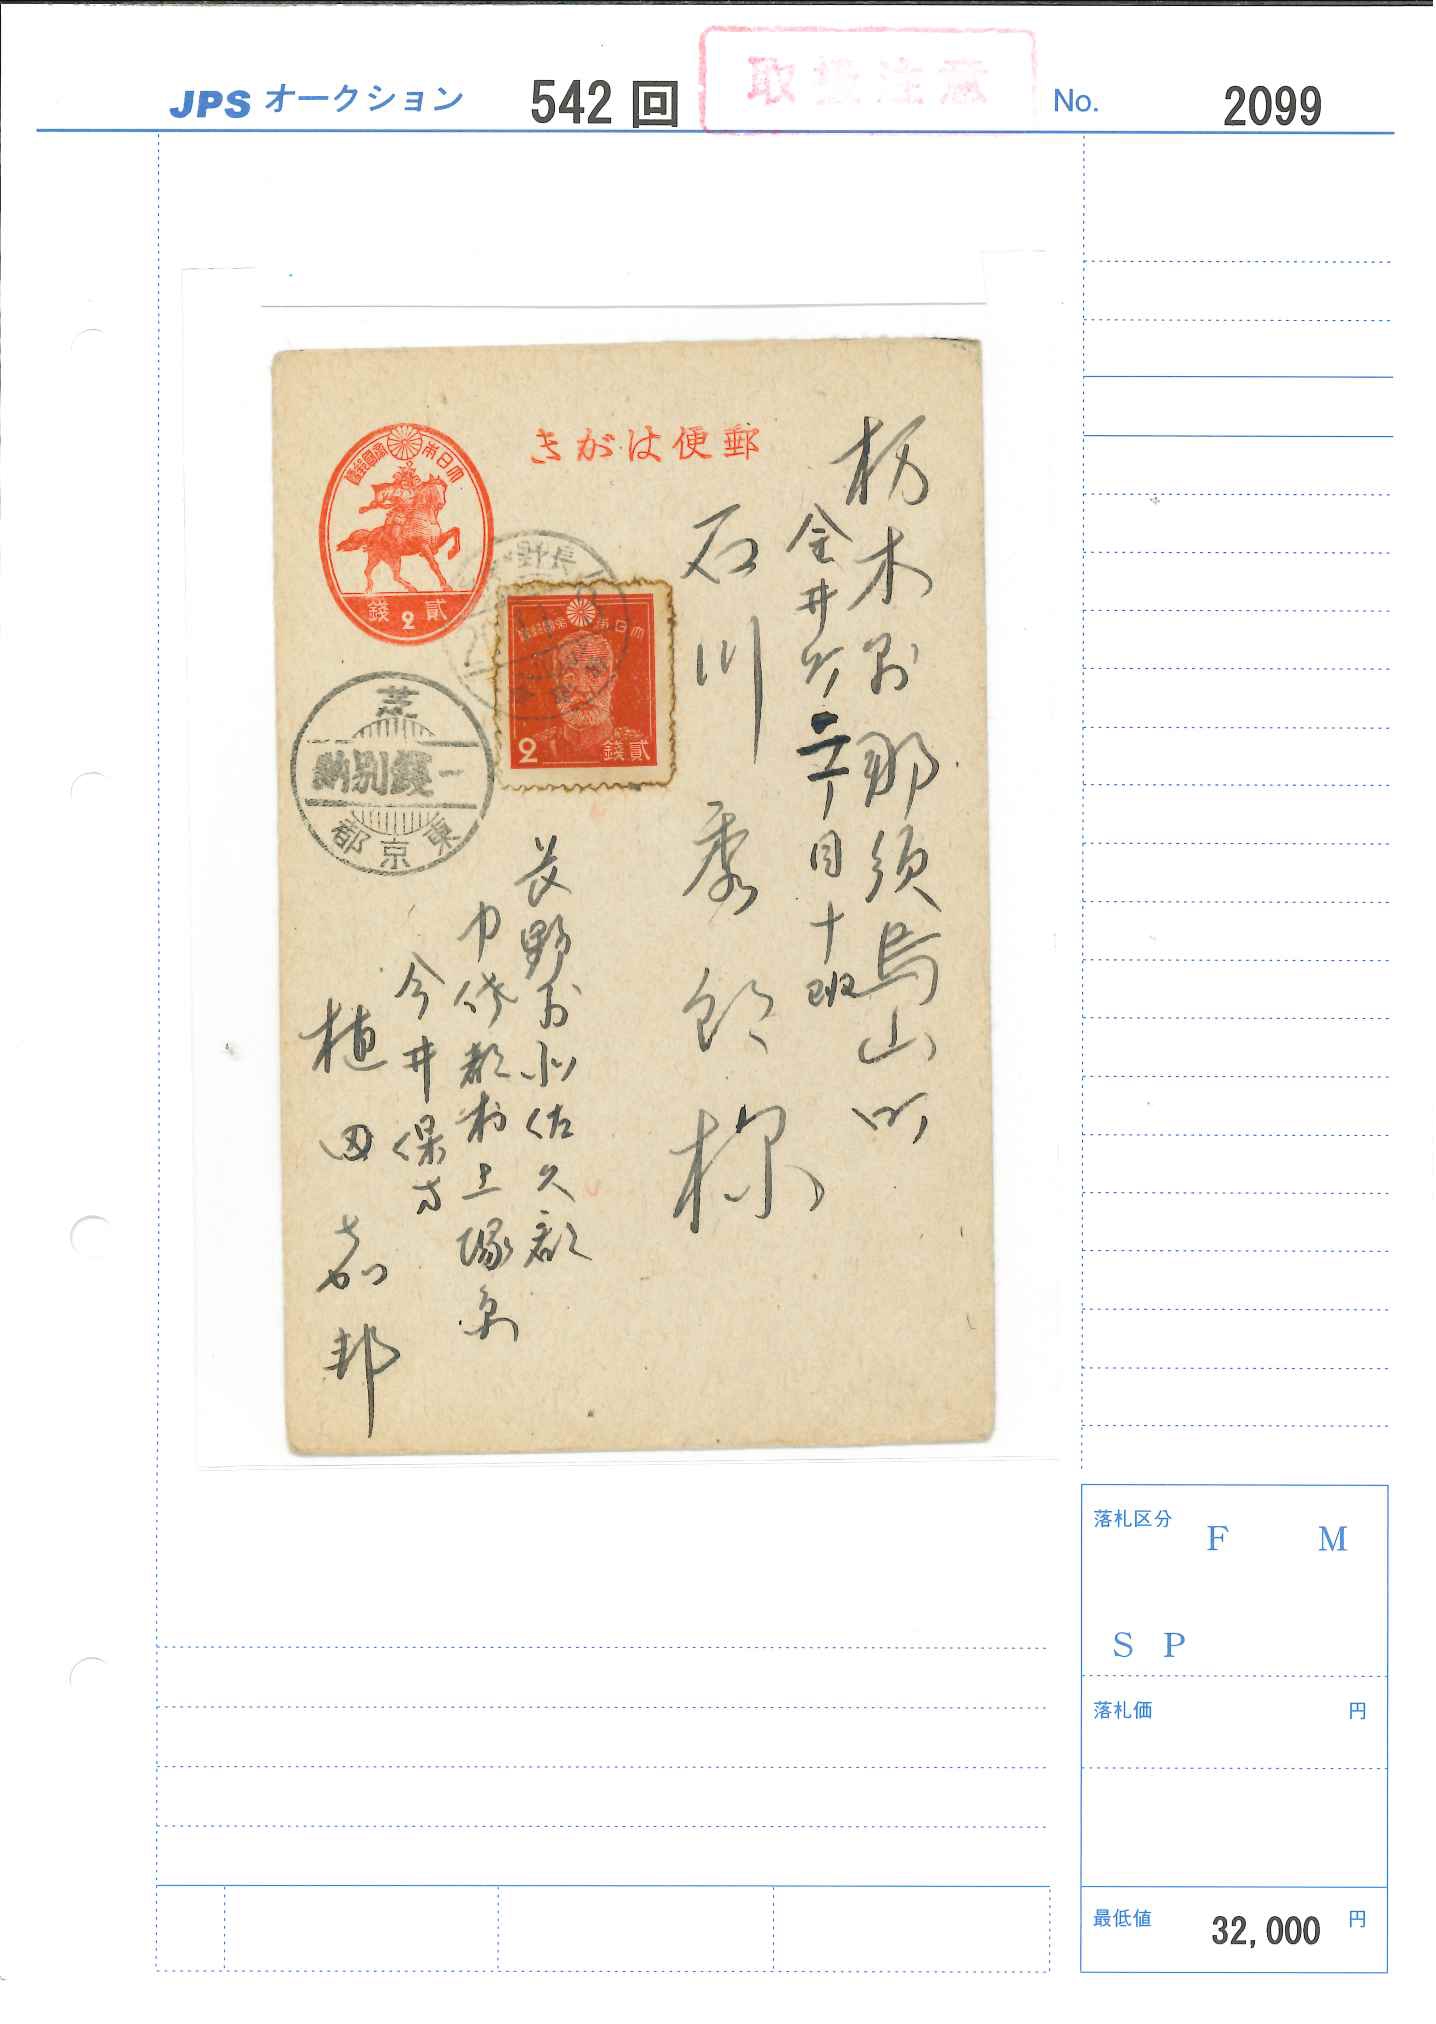 JPS オークション 542 回 No. 2099
取扱注意
きがは便郵
大日本帝國郵便
貳 2 錢
長野
大日本帝國郵便
2 貳錢
芝
納別錢一
東京都
栃木県那須烏山町
金井町二丁目十班
石川秀郎様
長野県北佐久郡
中佐都村上塚原
今井保方
植田嘉邦
落札区分 F M
S P
落札価 円
最低値 32,000 円